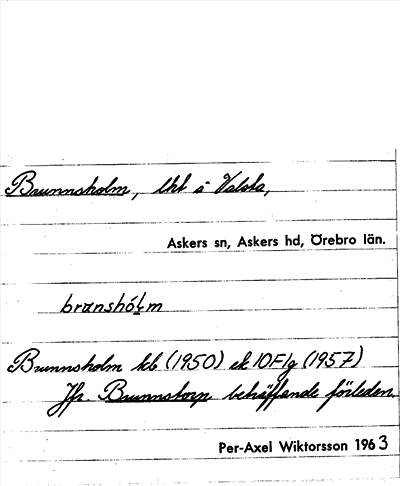 Brunnsholm, lht å Valsta,
Askers sn, Askers hd, Örebro län.
brœnshóḷm
Brunnsholm kb (1950) ek 10F1g (1957)
Jfr. Brunnstorp beträffande förleden.
Per-Axel Wiktorsson 1963